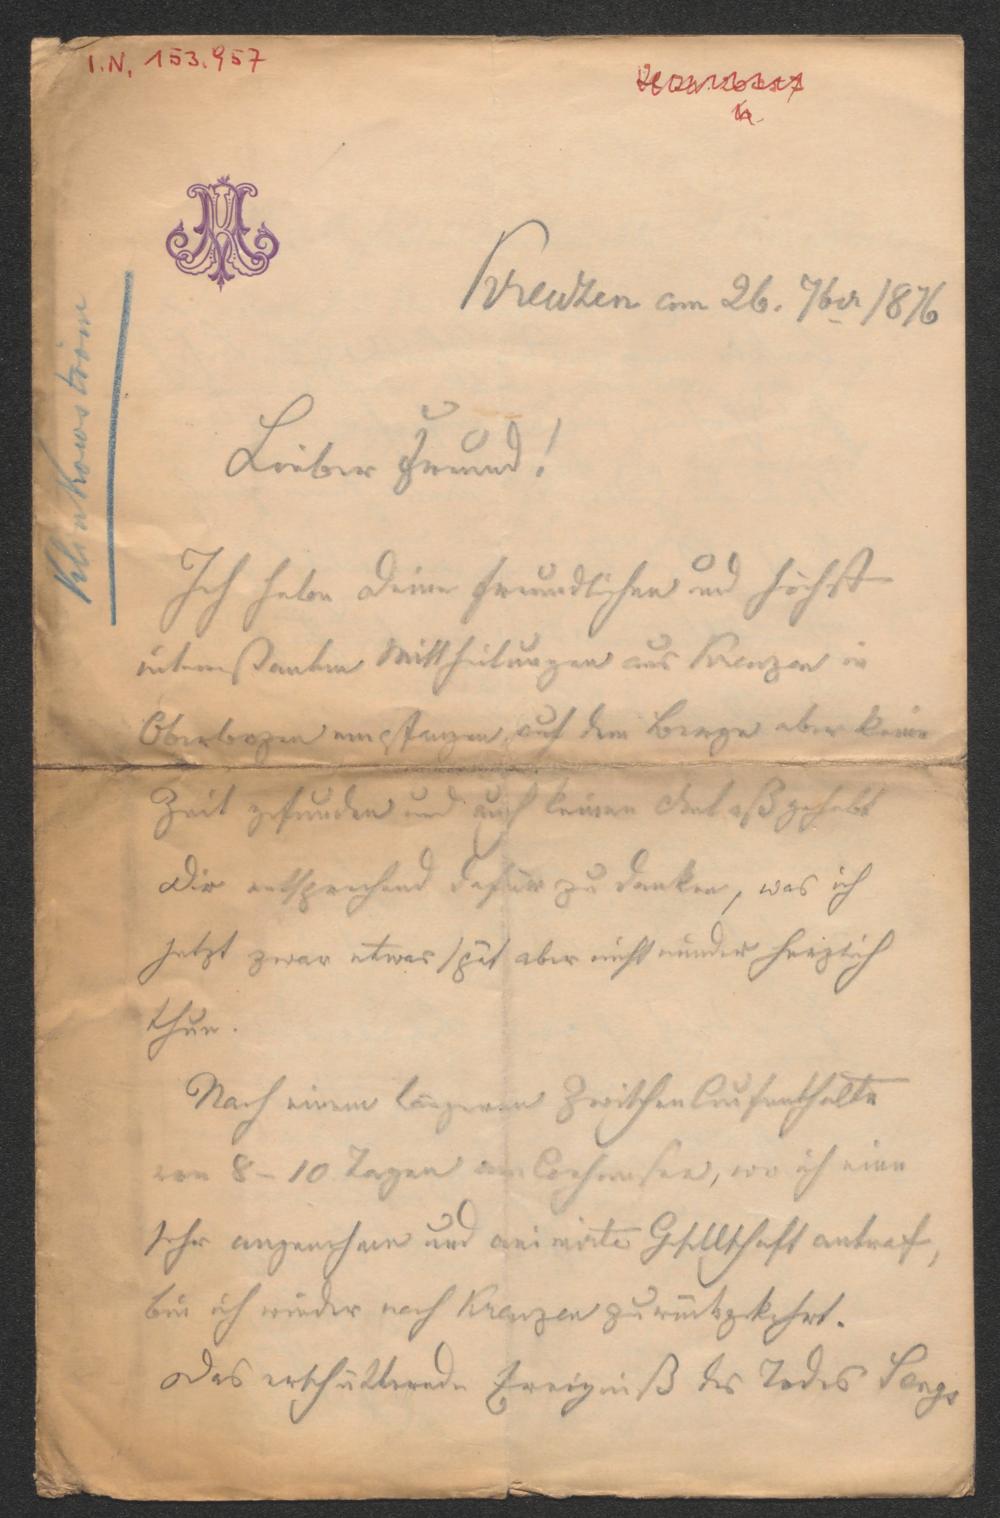 I.N. 153.957
Klinkowström
Kreutzen am 26. 7ber 1876
Lieber Freund!
Ich habe Deine freundlichen und höchst
interessanten Mittheilungen aus Kreuzen in
Oberbozen empfangen, auf dem Berge aber keine
Zeit gefunden und auch keinen Anlaß gehabt
Dir entsprechend dafür zu danken, was ich
jetzt zwar etwas spät aber nicht minder herzlich
thue.
Nach einem längeren Zwischenaufenthalte
von 8–10 Tagen am, wo ich eine
sehr angenehme und animirte Gesellschaft antraf,
bin ich wieder nach Kreuzen zurückgekehrt.
Das erschütternde Ereigniß des Todes